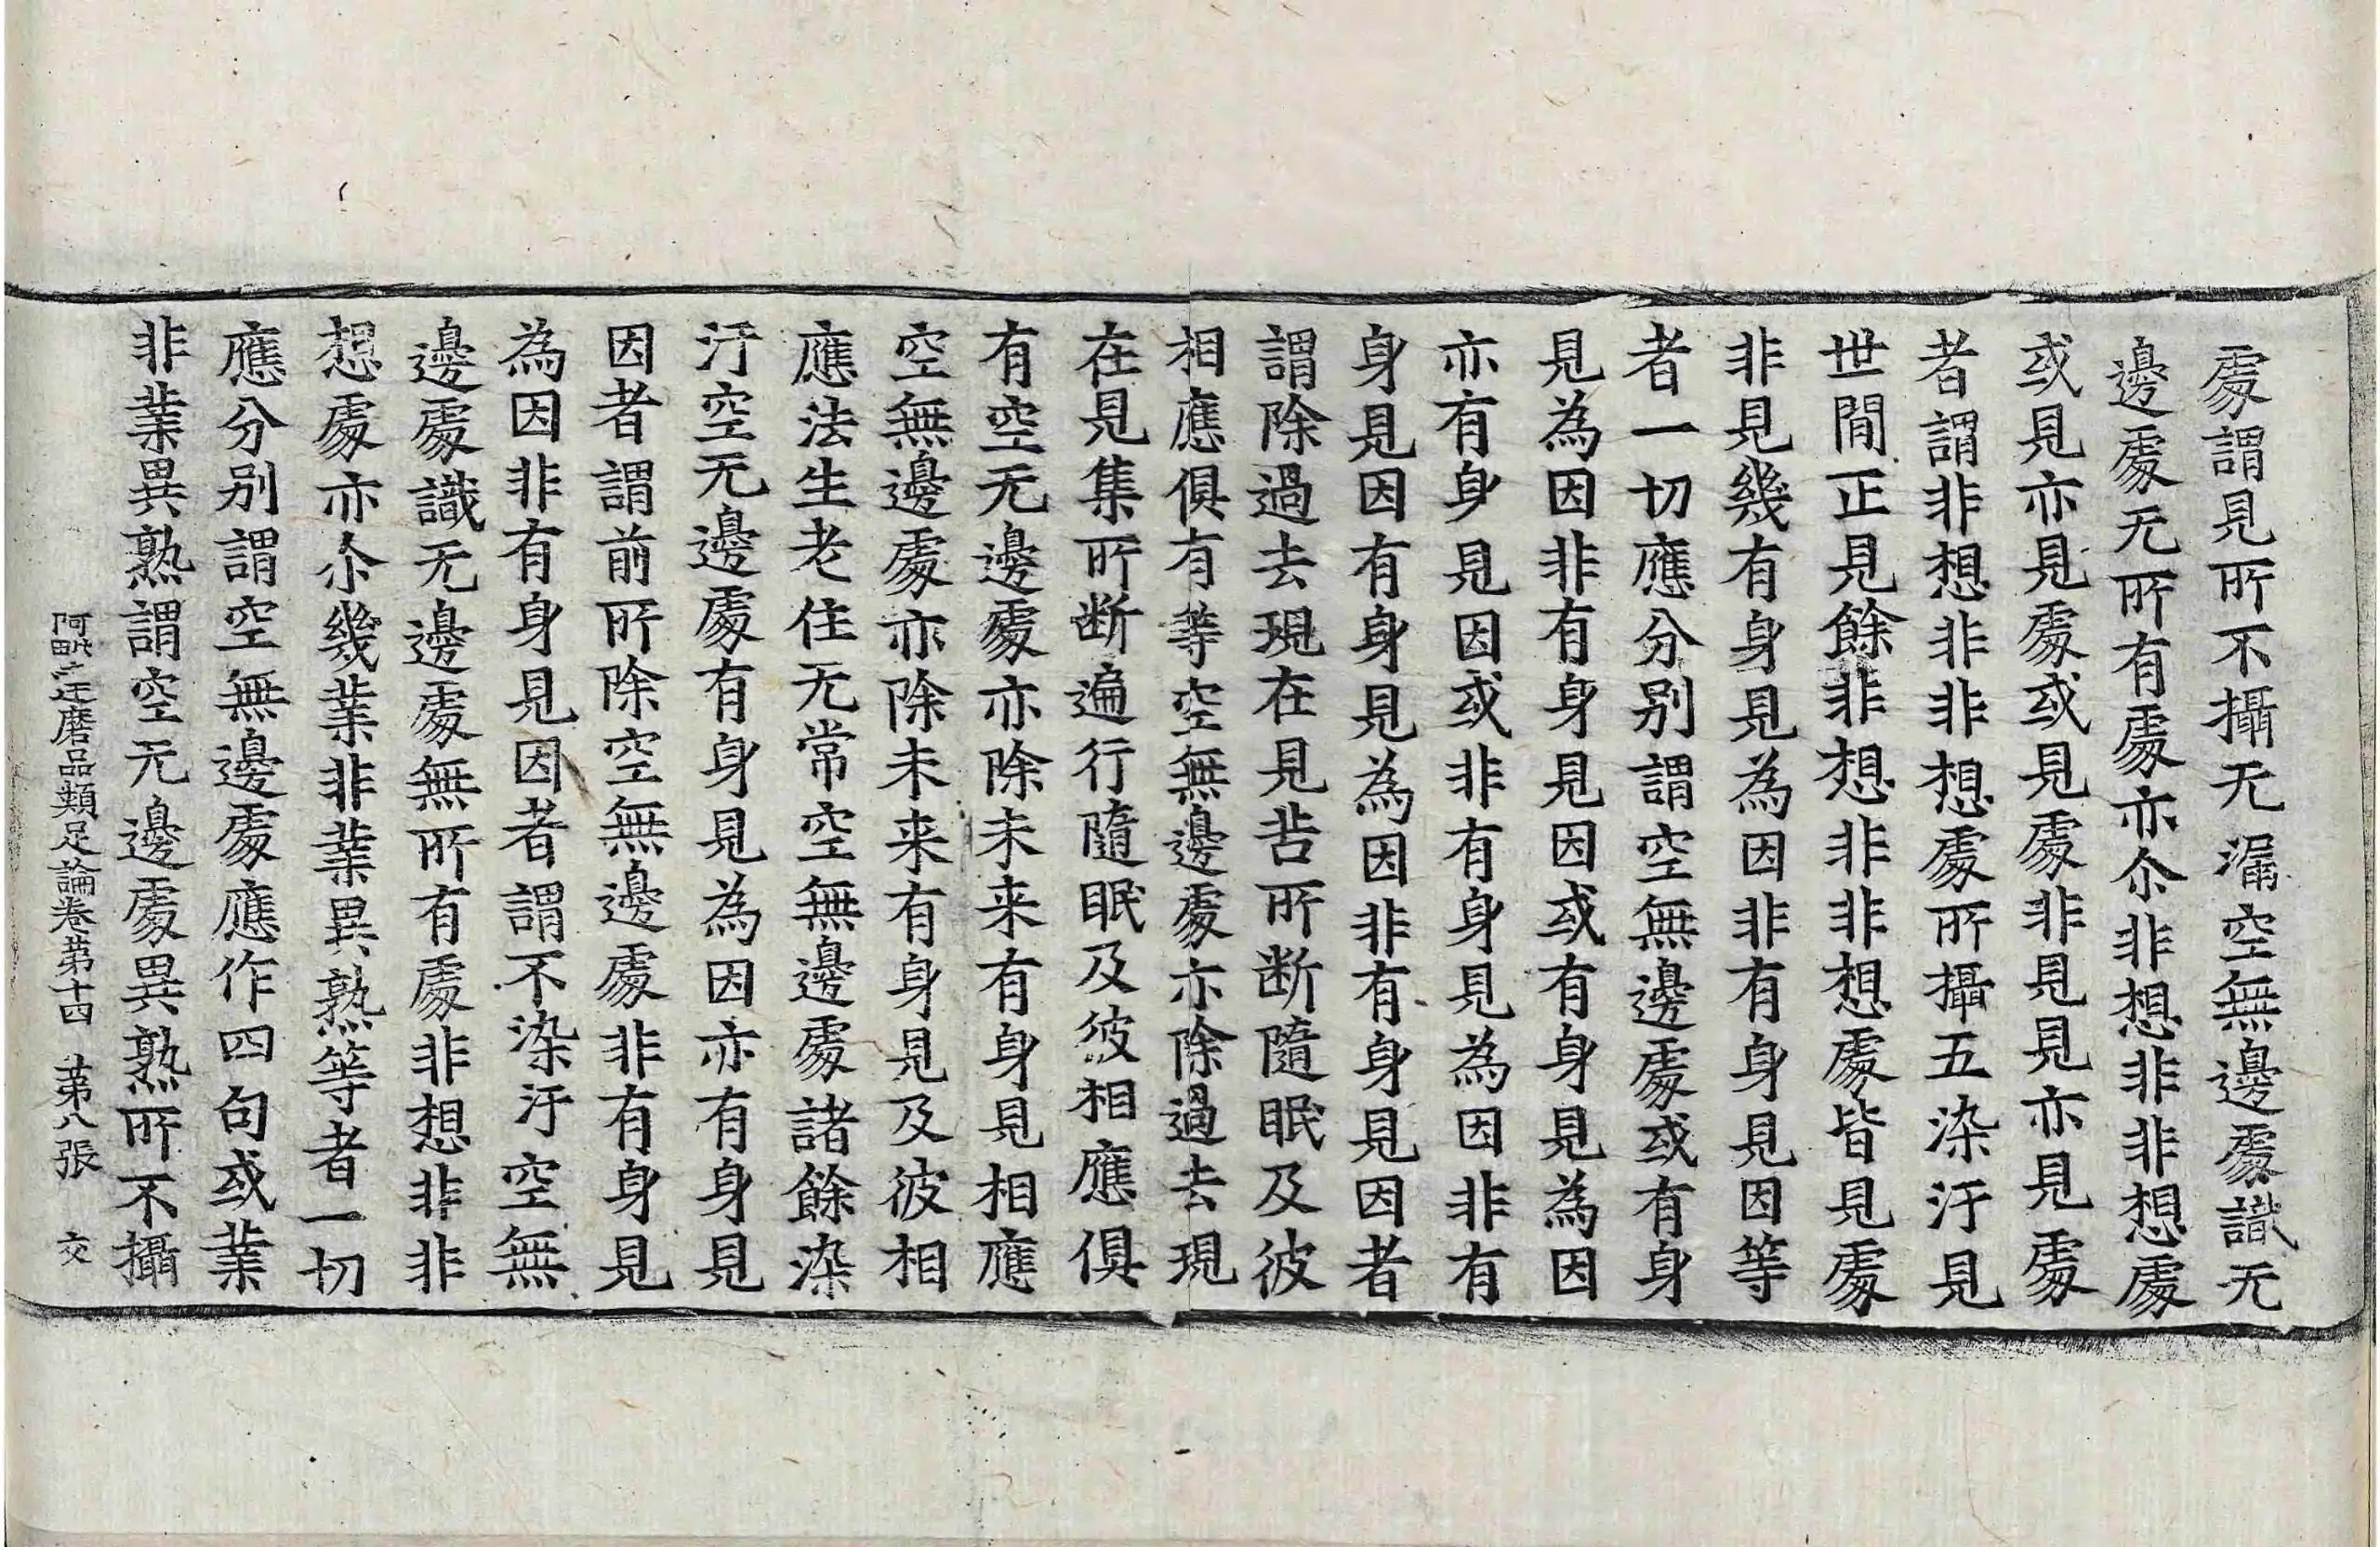 處謂見所不攝无漏空無邊處識无
邊處无所有處亦尒非想非非想處
或見亦見處或見處非見見亦見處
者謂非想非非想處所攝五染汙見
世間正見餘非想非非想處皆見處
非見幾有身見為因非有身見因等
者一切應分別謂空無邊處或有身
見為因非有身見因或有身見為因
亦有身見因或非有身見為因非有
身見因有身見為因非有身見因者
謂除過去現在見苦所断隨眠及彼
相應俱有等空無邊處亦除過去現
在見集所断遍行隨眠及彼相應俱
有空无邊處亦除未来有身見相應
空無邊處亦除未来有身見及彼相
應法生老住无常空無邊處諸餘染
汙空无邊處有身見為因亦有身見
因者謂前所除空無邊處非有身見
為因非有身見因者謂不染汙空無
邊處識无邊處無所有處非想非非
想處亦尒幾業非業異熟等者一切
應分別謂空無邊處應作四句或業
非業異熟謂空无邊處異熟所不攝
阿毗達磨品類足論卷第十四 第八張 交